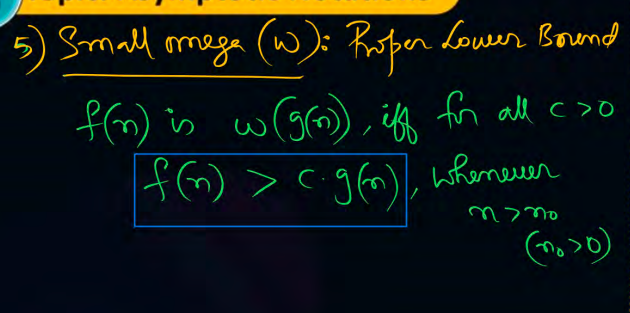 5) Small omega (ω): Proper Lower Bound
f(n) is ω(g(n)), iff for all c>0
f(n) > c·g(n), whenever
n>n₀
(n₀>0)